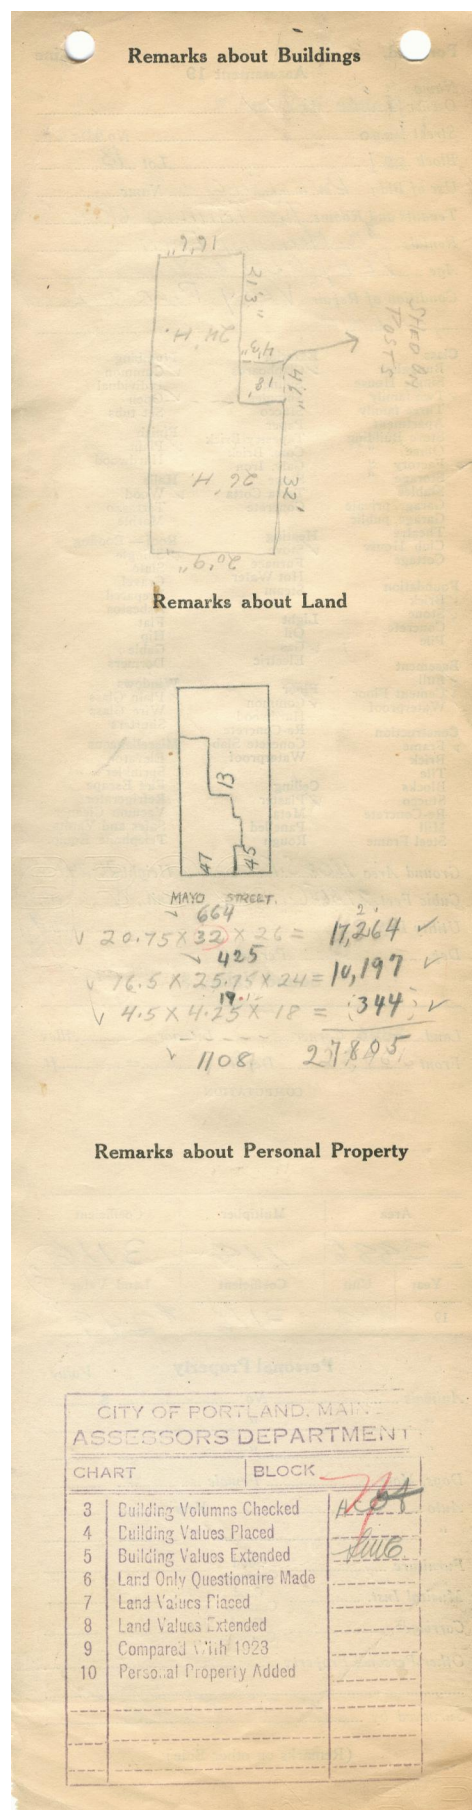 Remarks about Buildings
16'6"
21'3"
24' H.
4'3"
18'
4'6"
SHED ON
POSTS
26' H.
32'
20'9"
Remarks about Land
13
47
45
MAYO STREET.
664
20.75 X 32 X 26 = 17,264
425
16.5 X 25.75 X 24 = 10,197
19.1
4.5 X 4.25 X 18 = 344
1108 27805
Remarks about Personal Property
CITY OF PORTLAND, MAINE
ASSESSORS DEPARTMENT
CHART BLOCK
3 Building Volumns Checked
4 Building Values Placed
5 Building Values Extended
6 Land Only Questionaire Made
7 Land Values Placed
8 Land Values Extended
9 Compared With 1923
10 Personal Property Added